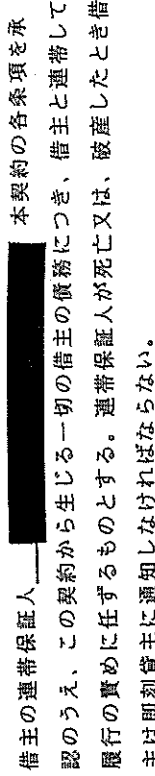 借主の連帯保証人 本契約の各条項を承
認のうえ、この契約から生じる一切の借主の債務につき、借主と連帯して
履行の責めに任ずるものとする。連帯保証人が死亡又は、破産したとき借
主は即刻貸主に通知しなければならない。